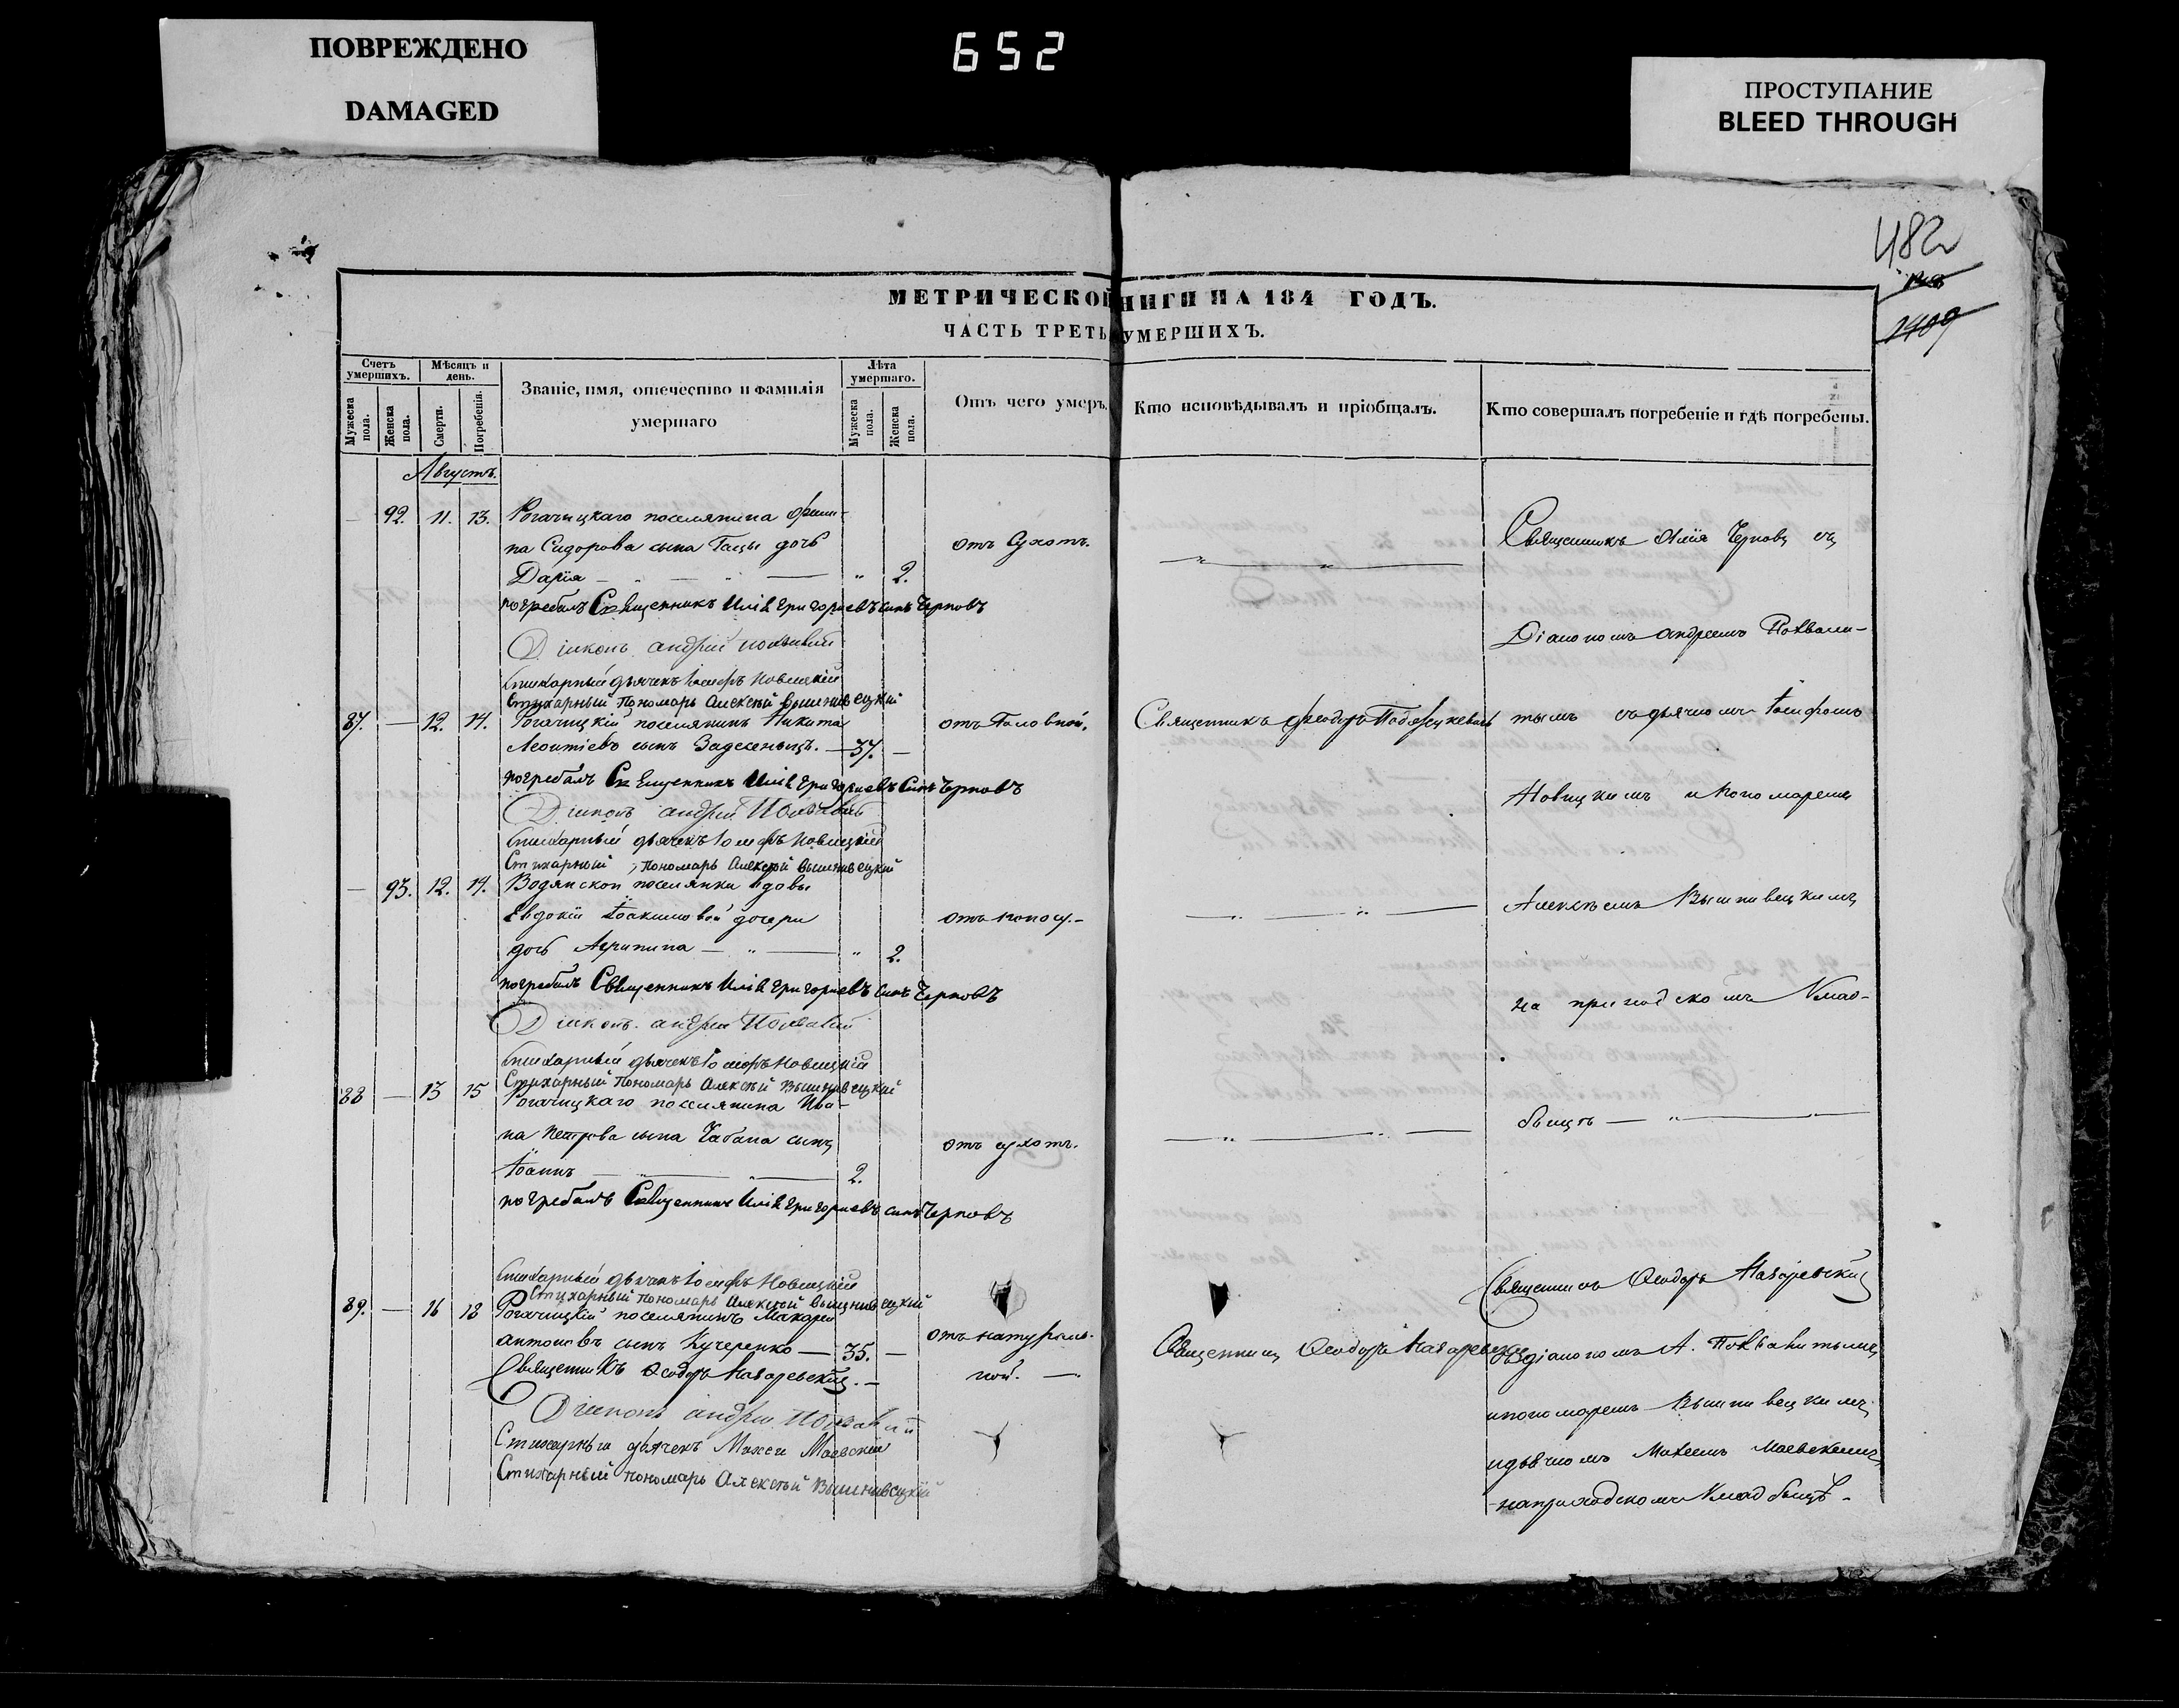 ПОВРЕЖДЕНО
DAMAGED
652
ПРОСТУПАНИЕ
BLEED THROUGH
482
1409
МЕТРИЧЕСКОЙ НИГИ НА 184 ГОДЪ.
ЧАСТЬ ТРЕТЬ УМЕРШИХЪ.
Счетъ умершихъ.
Мѣсяцъ и день.
Званіе, имя, отечество и фамилія умершаго
Лѣта умершаго.
Отъ чего умеръ.
Кто исповѣдывалъ и пріобщалъ.
Кто совершалъ погребеніе и гдѣ погребены.
Мужеска пола.
Женска пола.
Смерти.
Погребенія.
Мужеска пола.
Женска пола.
Августъ.
92. 11. 13. Рогачицкаго поселянина
на Сидорова сына дочь
отъ Сухотъ.
Священникъ Илія Черновъ съ
Дарія — 2.
погребалъ Священникъ Илія Григориевъ синъ Черновъ
Діаконъ андрей
Діакономъ андреемъ Похвали-
Стихарный дьячекъ Іосифъ Новицкій
Стихарный Пономарь Алексѣй Вышнивецкий
87. — 12. 14. Рогачицкій поселянинъ Никита
отъ Головной.
Священникъ Феодоръ
тымъ съ дьячкомъ Іосифомъ
Леонтіевъ сынъ — 37. —
погребалъ Священникъ Илія Григориевъ Синъ Черновъ
Діаконъ андрей
Новицкимъ и Пономаремъ
Стихарный дьячекъ Іосифъ Новицкій
Стихарный Пономарь Алексѣй Вышнивецкий
— 93. 12. 14. Водянской поселянки вдовы
Евдокіи Іоакимовой дочери
отъ поносу. -
Алексѣемъ Вышнивецкимъ
дочь Агрипина — 2.
погребалъ Священникъ Илія Григориевъ синъ Черновъ
на приходскомъ Клад-
Діаконъ андрей
Стихарный дьячекъ Іосифъ Новицкій
Стихарный Пономарь Алексѣй Вышнивецкий
88 — 13 15 Рогачицкаго поселянина Ива-
на Петрова сына Чабана сынъ
отъ сухотъ.
бищѣ —
Іоаннъ — 2.
погребалъ Священникъ Илія Григориевъ синъ Черновъ
Стихарный дьячекъ Іосифъ Новицкій
Стихарный Пономарь Алексѣй Вышнивецкий
Священникъ Феодоръ Назаревскій
89. — 16 18 Рогачицкій поселянинъ Макарій
антоновъ сынъ Кучеренко — 35. —
отъ натураль-
ной. —
Священникъ Феодоръ Назаревскій
съ діакономъ А. Похвалитымъ
Священникъ Феодоръ Назаревскій. —
Діаконъ андрей
и пономаремъ Вышнивецкимъ
Стихарный дьячекъ Моисей Маевскій
и дьячкомъ Моисеемъ Маевскимъ
Стихарный пономарь Алексѣй Вышнивецкій
на приходскомъ Кладбищѣ -